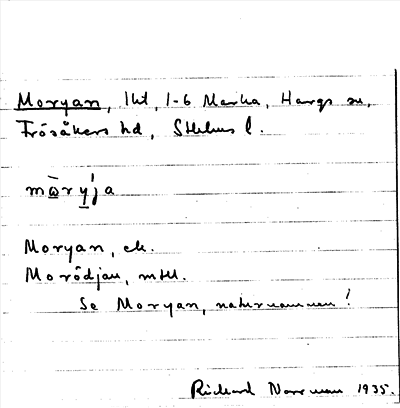 Moryan, lht, 1-6 Marka, Hargs sn,
Frösåkers hd, Sthlms l.
mòrýja
Moryan, ek.
Morödjan, mtbl.
Se Moryan, naturnamnen!
Rickard Norrman 1935.